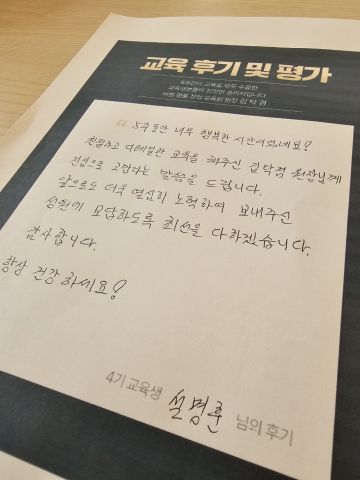 교육 후기 및 평가
5주간의 교육을 모두 수료한
교육생분들이 진정한 승리자입니다.
바른 명품 창업 교육원 원장 김 탁 겸
5주동안 너무 행복한 시간이었네요!
친절하고 디테일한 교육을 해주신 김탁겸 원장님께
진심으로 고맙다는 말씀을 드립니다.
앞으로도 더욱 열심히 노력하여 보내주신
성원에 보답하도록 최선을 다하겠습니다.
감사합니다.
항상 건강하세요!
4기 교육생 설명훈 님의 후기